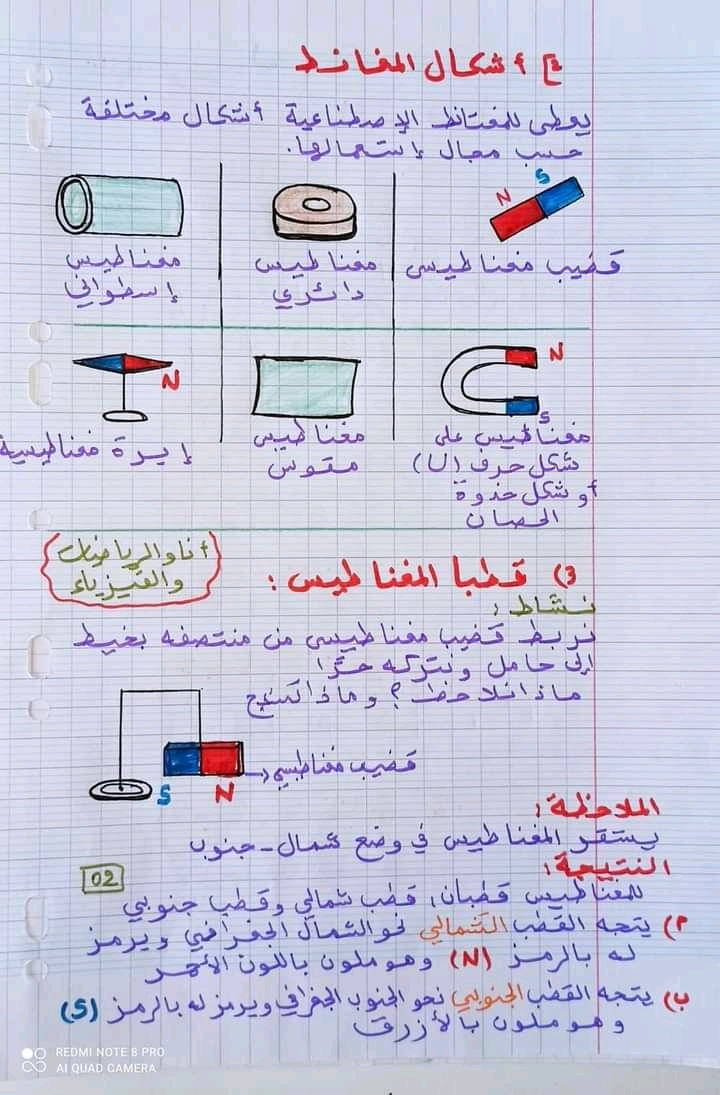 2] أشكال المغانط
يعطى للمغانط الإصطناعية أشكال مختلفة
حسب مجال إستعمالها.
N S
قضيب مغناطيسي
مغناطيس
دائري
مغناطيس
إسطواني
N
S
مغناطيس على
شكل حرف (U)
أو شكل حذوة
الحصان
مغناطيس
مقوس
N
إبرة مغناطيسية
أنا والرياضيات
والفيزياء
3) قطبا المغناطيس :
نشاط :
نربط قضيب مغناطيسي من منتصفه بخيط
إلى حامل ونتركه حرًا
ماذا نلاحظ ؟ وماذا نستنتج
قضيب مغناطيسي
S N
الملاحظة :
يستقر المغناطيس في وضع شمال - جنوب
النتيجة :
02
للمغناطيس قطبان، قطب شمالي وقطب جنوبي
أ) يتجه القطب الشمالي نحو الشمال الجغرافي ويرمز
له بالرمز (N) وهو ملون باللون الأحمر
ب) يتجه القطب الجنوبي نحو الجنوب الجغرافي ويرمز له بالرمز (S)
وهو ملون بالأزرق
REDMI NOTE 8 PRO
AI QUAD CAMERA